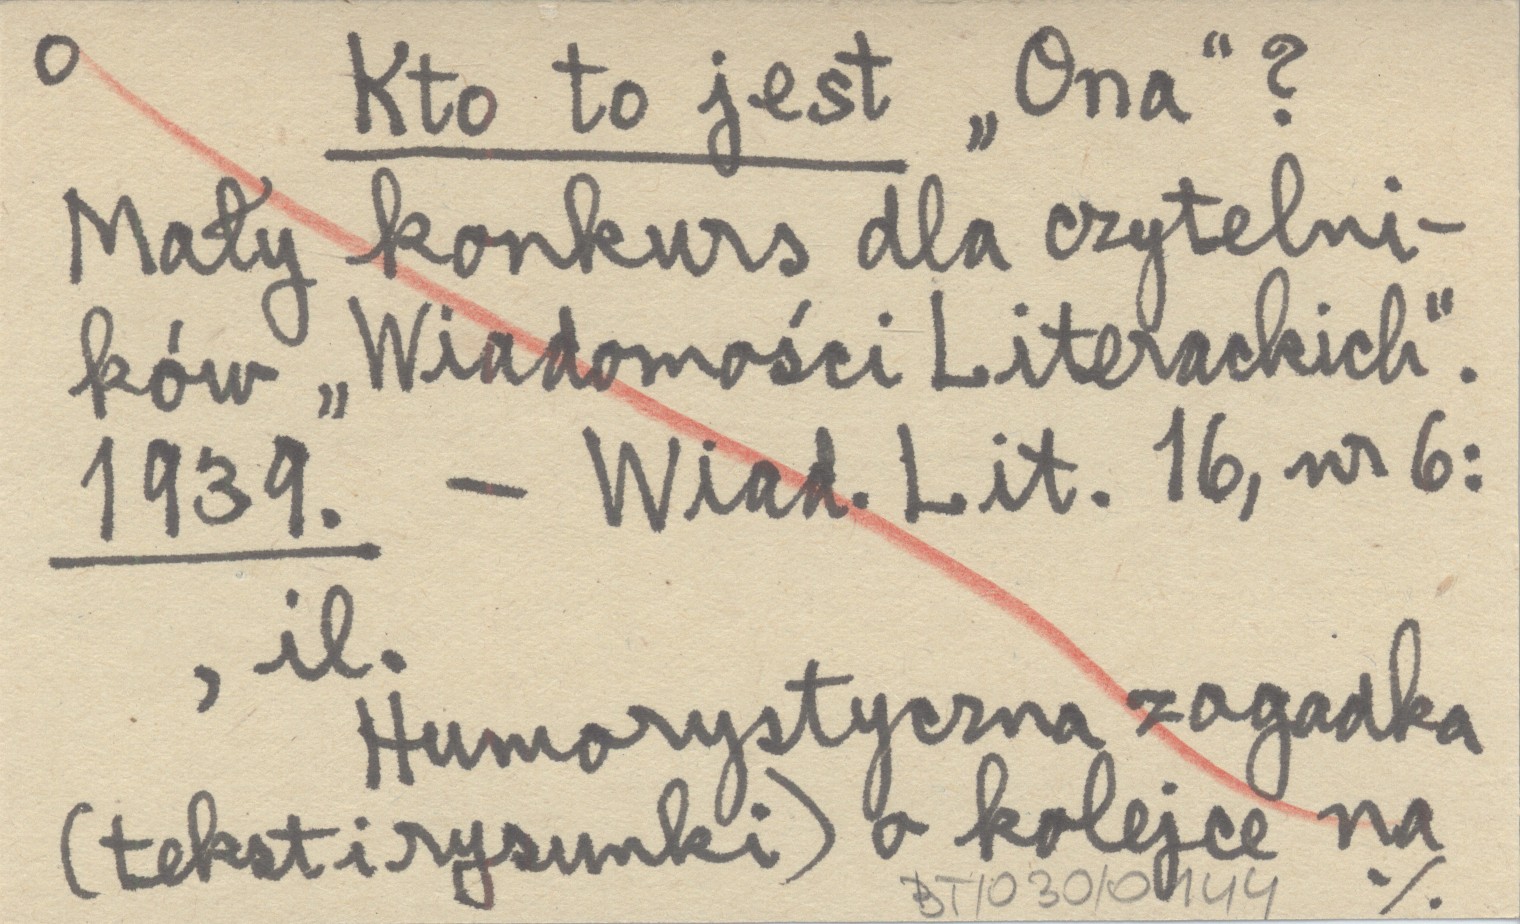 o Kto to jest „Ona“?
Mały konkurs dla czytelni-
ków „Wiadomości Literackich“.
1939. — Wiad. Lit. 16, nr 6:
, il.
Humorystyczna zagadka
(tekst i rysunki) o kolejce na
BT/030/0144 ·/.